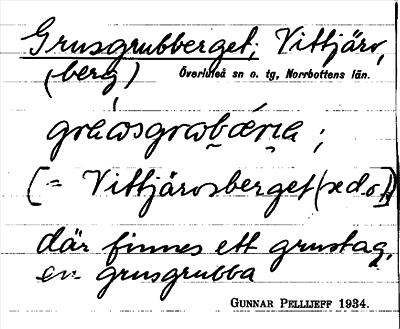 Grusgrubberget; Vittjärv,
(berg) Överluleå sn o. tg, Norrbottens län.
[= Vittjärvsberget (se d.o.)]
där finnes ett grustag,
en grusgrubba
GUNNAR PELLIJEFF 1934.